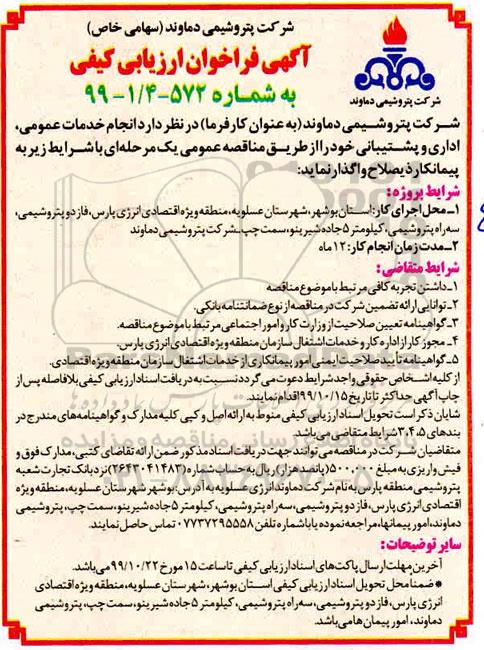 شرکت پتروشیمی دماوند (سهامی خاص)
آگهی فراخوان ارزیابی کیفی
به شماره ۵۷۲-۱/۴-۹۹
شرکت پتروشیمی دماوند
شرکت پتروشیمی دماوند (به عنوان کارفرما) در نظر دارد انجام خدمات عمومی،
اداری و پشتیبانی خود را از طریق مناقصه عمومی یک مرحله‌ای با شرایط زیر به
پیمانکار ذیصلاح واگذار نماید:
شرایط پروژه:
۱-محل اجرای کار: استان بوشهر، شهرستان عسلویه، منطقه ویژه اقتصادی انرژی پارس، فاز دو پتروشیمی،
سه راه پتروشیمی، کیلومتر ۵ جاده شیرینو، سمت چپ-شرکت پتروشیمی دماوند
۲-مدت زمان انجام کار: ۱۲ ماه
شرایط متقاضی:
۱-داشتن تجربه کافی مرتبط با موضوع مناقصه
۲-توانایی ارائه تضمین شرکت در مناقصه از نوع ضمانتنامه بانکی.
۳-گواهینامه تعیین صلاحیت از وزارت کار و امور اجتماعی مرتبط با موضوع مناقصه.
۴-مجوز کار از اداره کار و خدمات اشتغال سازمان منطقه ویژه اقتصادی انرژی پارس.
۵-گواهینامه تأیید صلاحیت ایمنی امور پیمانکاری از خدمات اشتغال سازمان منطقه ویژه اقتصادی.
از کلیه اشخاص حقوقی واجد شرایط دعوت می‌گردد نسبت به دریافت اسناد ارزیابی کیفی بلافاصله پس از
چاپ آگهی حداکثر تا تاریخ ۹۹/۱۰/۱۵ اقدام نمایند.
شایان ذکر است تحویل اسناد ارزیابی کیفی منوط به ارائه اصل و کپی کلیه مدارک و گواهینامه‌های مندرج در
بندهای ۳،۴،۵ شرایط متقاضی می‌باشد.
متقاضیان شرکت در مناقصه می‌توانند جهت دریافت اسناد مذکور ضمن ارائه تقاضای کتبی، مدارک فوق و
فیش واریزی به مبلغ ۵۰۰،۰۰۰ (پانصد هزار) ریال به حساب شماره (۲۶۴۳۰۴۱۴۸۳) نزد بانک تجارت شعبه
پتروشیمی منطقه پارس به نام شرکت دماوند انرژی عسلویه به آدرس: بوشهر شهرستان عسلویه، منطقه ویژه
اقتصادی انرژی پارس، فاز دو پتروشیمی، سه راه پتروشیمی، کیلومتر ۵ جاده شیرینو، سمت چپ، پتروشیمی
دماوند، امور پیمانها، مراجعه نموده یا با شماره تلفن ۰۷۷۳۷۲۹۵۵۵۸ تماس حاصل نمایند.
سایر توضیحات:
آخرین مهلت ارسال پاکت‌های اسناد ارزیابی کیفی تا ساعت ۱۵ مورخ ۹۹/۱۰/۲۲ می‌باشد.
* ضمنا محل تحویل اسناد ارزیابی کیفی استان بوشهر، شهرستان عسلویه، منطقه ویژه اقتصادی
انرژی پارس، فاز دو پتروشیمی، سه راه پتروشیمی، کیلومتر ۵ جاده شیرینو، سمت چپ، پتروشیمی
دماوند، امور پیمان‌ها می‌باشد.